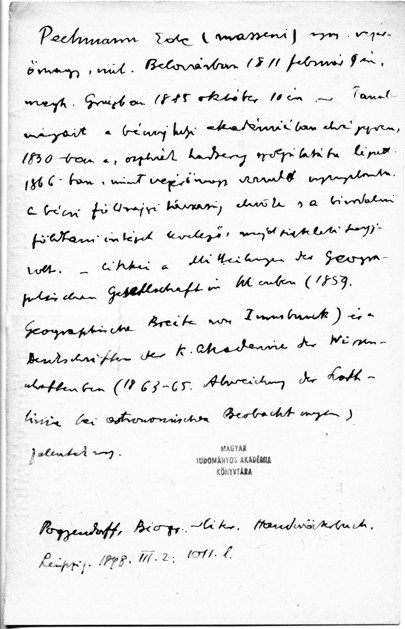 Pechmann Ede (masseni) nyug. vezér-
őrnagy, szül. Belovárban 1811 február 9 én,
megh. Grazban 1885 október 10 én. — Tanul-
mányait a bécsújhelyi akadémiában elvégezvén,
1830-ban az osztrák hadsereg szolgálatába lépett
1866-ban, mint vezérőrnagy vonult nyugalomba.
a bécsi földrajzi társaság elnöke s a birodalmi
földtani intézet levelező, majd tiszteleti tagja
volt. — Cikkei a Mittheilungen der Geogra-
phischen Gesellschaft in Wienben (1859.
Geographische Breite von Innsbruck) és a
Denkschriften der K. Akademie der Wissen-
schaftenben (1863-65. Abweichung der Loth-
linie bei astronomischen Beobachtungen)
jelentek meg.
MAGYAR
TUDOMÁNYOS AKADÉMIA
KÖNYVTÁRA
Poggendorff, Biogr.-liter. Handwörterbuch.
Leipzig. 1898. III. 2. 1011. l.